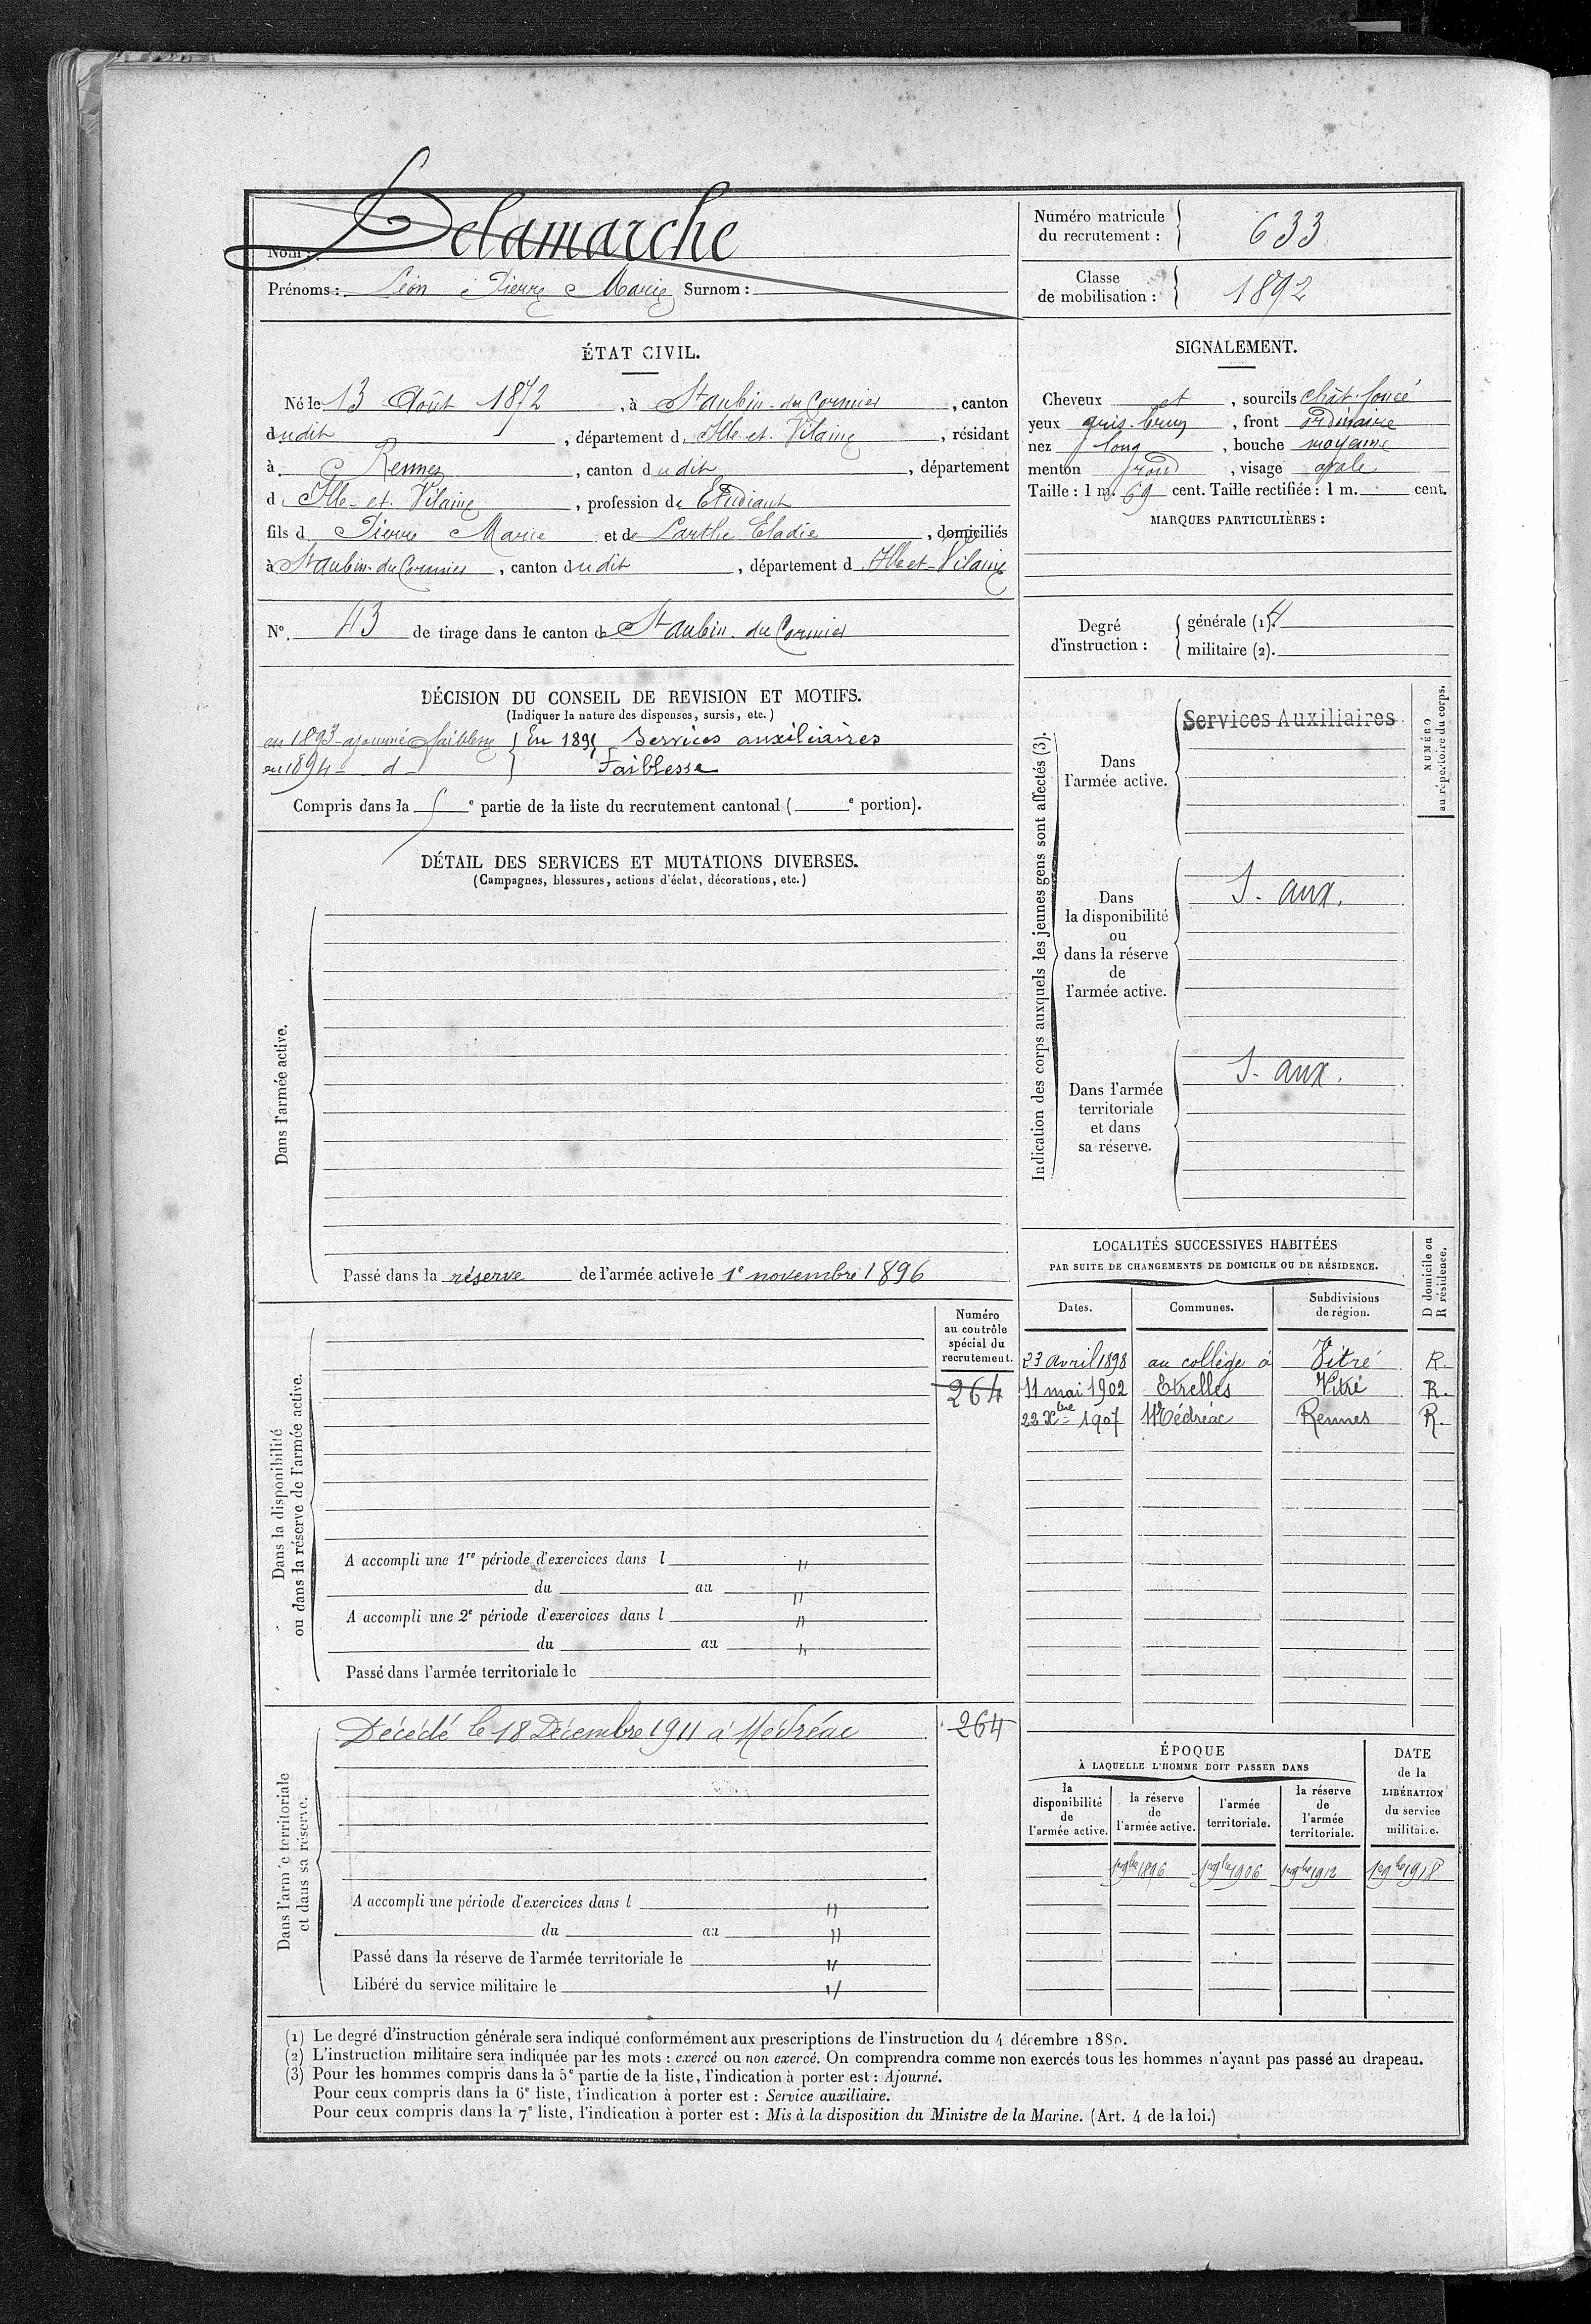 Nom : Delamarche
Prénoms : Léon Pierre Marie Surnom :
Numéro matricule du recrutement : 633
Classe de mobilisation : 1892
ÉTAT CIVIL.
Né le 13 Août 1872, à St aubin-du Cormier, canton
dudit, département d. Ille-et-Vilaine, résidant
à Rennes, canton dudit, département
d Ille-et-Vilaine, profession de Etudiant
fils d. Pierre Marie et de Larthe Eladie, domiciliés
à St Aubin-du Cormier, canton dudit, département d Ille et-Vilaine
N°. 43 de tirage dans le canton de St aubin-du Cormier
SIGNALEMENT.
Cheveux et, sourcils chât-foncé
yeux gris-brun, front ordinaire
nez long, bouche moyenne
menton rond, visage ovale
Taille : 1 m. 69 cent. Taille rectifiée : 1 m. cent.
MARQUES PARTICULIÈRES :
Degré d'instruction :
générale (1). 4
militaire (2).
DÉCISION DU CONSEIL DE REVISION ET MOTIFS.
(Indiquer la nature des dispenses, sursis, etc.)
en 1893 ajourné faiblesse } En 1895 Services auxiliaires
en 1894 - d - } Faiblesse
Compris dans la e partie de la liste du recrutement cantonal ( e portion).
DÉTAIL DES SERVICES ET MUTATIONS DIVERSES.
(Campagnes, blessures, actions d'éclat, décorations, etc.)
Dans l'armée active.
Passé dans la réserve de l'armée active le 1e novembre 1896
Indication des corps auxquels les jeunes gens sont affectés (3).
NUMÉRO au répertoire du corps.
Dans l'armée active.
Services Auxiliaires
Dans la disponibilité ou dans la réserve de l'armée active.
S. aux.
Dans l'armée territoriale et dans sa réserve.
S. aux.
LOCALITÉS SUCCESSIVES HABITÉES
PAR SUITE DE CHANGEMENTS DE DOMICILE OU DE RÉSIDENCE.
D domicile ou R résidence.
Dates. Communes. Subdivisions de région.
23 avril 1898 au collège à Vitré R.
11 mai 1902 Etrelles Vitré R.
22 Xbre 1907 Médréac Rennes R.
Dans la disponibilité ou dans la réserve de l'armée active.
Numéro au contrôle spécial du recrutement.
264
A accompli une 1re période d'exercices dans l "
du au "
A accompli une 2e période d'exercices dans l "
du au "
Passé dans l'armée territoriale le
Dans l'armée territoriale et dans sa réserve.
Décédé le 18 Décembre 1911 à Médréac
264
A accompli une période d'exercices dans l "
du au "
Passé dans la réserve de l'armée territoriale le "
Libéré du service militaire le "
ÉPOQUE
À LAQUELLE L'HOMME DOIT PASSER DANS
la disponibilité de l'armée active.
la réserve de l'armée active.
l'armée territoriale.
la réserve de l'armée territoriale.
DATE de la LIBÉRATION du service militaire.
1er 9bre 1896 1er 9bre 1906 1er 9bre 1912 1er 9bre 1918
(1) Le degré d'instruction générale sera indiqué conformément aux prescriptions de l'instruction du 4 décembre 1889.
(2) L'instruction militaire sera indiquée par les mots : exercé ou non exercé. On comprendra comme non exercés tous les hommes n'ayant pas passé au drapeau.
(3) Pour les hommes compris dans la 5e partie de la liste, l'indication à porter est : Ajourné.
Pour ceux compris dans la 6e liste, l'indication à porter est : Service auxiliaire.
Pour ceux compris dans la 7e liste, l'indication à porter est : Mis à la disposition du Ministre de la Marine. (Art. 4 de la loi.)